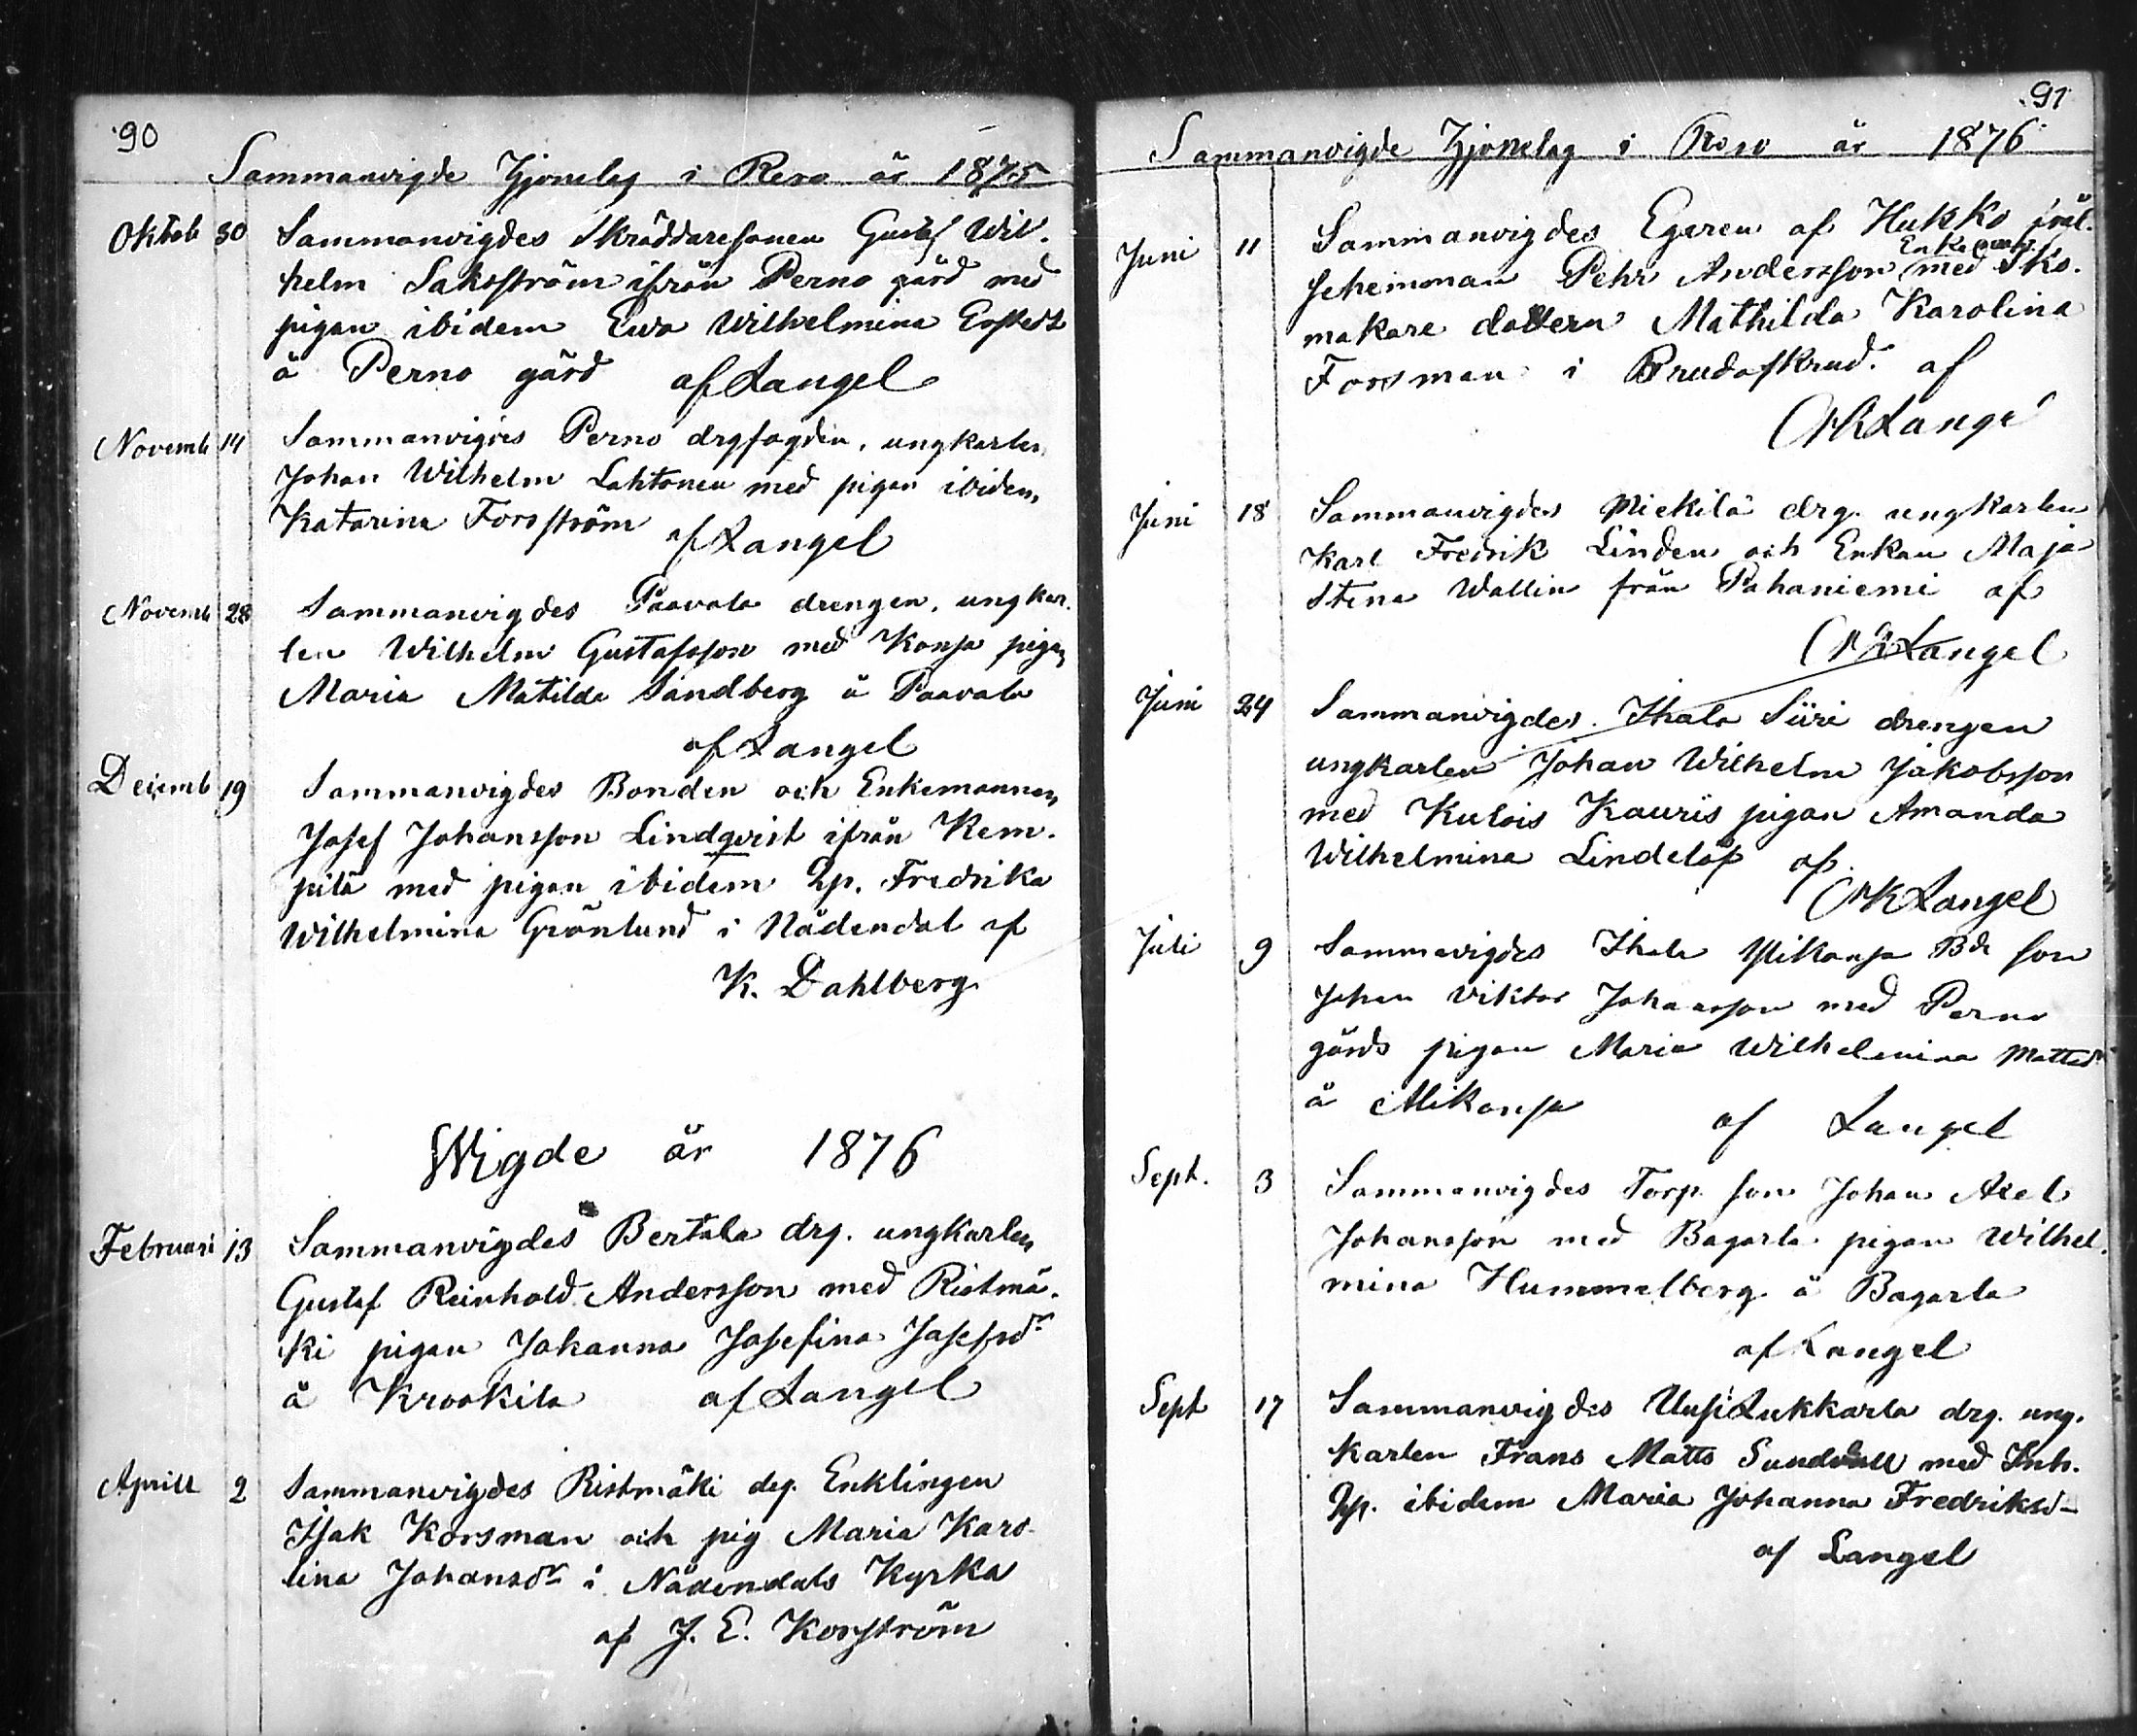 90
Sammanvigde Hjonelag i Reso år 1875
Oktob 30 Sammanvigdes Skräddaresonen Gustaf Wil-
helm Saksström ifrån Perno gård med
pigan ibidem Ewa Wilhelmina
å Perno gård af Langel
Novemb 14 Sammanvigdes Perno drgfogden, ungkarlen
Johan Wilhelm Lahtonen med pigan ibidem
Katarina Forsström af Langel
Novemb 28 Sammanvigdes Paavala drengen, ungkar-
len Wilhelm Gustafsson med Konsa pigan
Maria Matilda Sandberg å Paavala
af Langel
Decemb 19 Sammanvigdes Bonden och Enkemannen
Josef Johansson Lindqvist ifrån Kem-
pilä med pigan ibidem Fredrika
Wilhelmina Grönlund i Nådendal af
K. Dahlberg
Wigde år 1876
Februari 13 Sammanvigdes Bertala drg. ungkarlen
Gustaf Reinhold Andersson med Ristmä-
ki pigan Johanna Josefina Josefsdr
å Krookila af Langel
Aprill 2 Sammanvigdes Ristmäki drg. Enklingen
Isak Korsman och pig Maria Karo-
lina Johansdr i Nådendals Kyrka
af J. E. Korström
91
Sammanvigde Hjonelag i Reso år 1876
Juni 11 Sammanvigdes Egaren af Hukko fräl-
Enkeman
sehemman Pehr Andersson med Sko-
makare dottern Mathilda Karolina
Forsman i Brudaskrud. af
Langel
Juni 18 Sammanvigdes Miekilä drg. ungkarlen
Karl Fredrik Linden och Enkan Maja
Stina Wallin från Pahaniemi af
Langel
Juni 24 Sammanvigdes Ihala Siiri drengen
ungkarlen Johan Wilhelm Jakobsson
med Kulois Kauris pigan Amanda
Wilhelmina Lindelöf af
Langel
Juli 9 Sammavigdes Ihala Mikonsa Bd son
Johan Viktor Johansson med Perno
gårds pigan Maria Wilhelmina Mattsd
å Mikonsa af Langel
Sept. 3 Sammanvigdes Torp. son Johan Axel
Johansson med Bagarla pigan Wilhel-
mina Hummelberg å Bagarla
af Langel
Sept 17 Sammanvigdes Uusi Lukkarla drg. ung-
karlen Frans Matts Sundvall med Inh.
ibidem Maria Johanna Fredriksd
af Langel